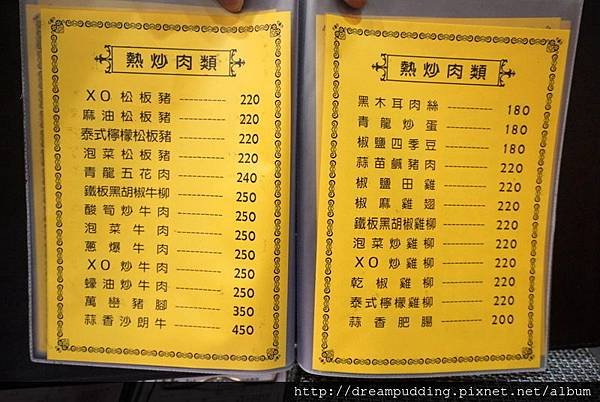 熱炒肉類
XO松板豬 220
麻油松板豬 220
泰式檸檬松板豬 220
泡菜松板豬 220
青龍五花肉 240
鐵板黑胡椒牛柳 250
酸筍炒牛肉 250
泡菜牛肉 250
蔥爆牛肉 250
XO炒牛肉 250
蠔油炒牛肉 250
萬巒豬腳 350
蒜香沙朗牛 450
熱炒肉類
黑木耳肉絲 180
青龍炒蛋 180
椒鹽四季豆 180
蒜苗鹹豬肉 220
椒鹽田雞 220
椒麻雞翅 220
鐵板黑胡椒雞柳 220
泡菜炒雞柳 220
XO炒雞柳 220
乾椒雞柳 220
泰式檸檬雞柳 220
蒜香肥腸 200
http://dreampudding.pixnet.net/album